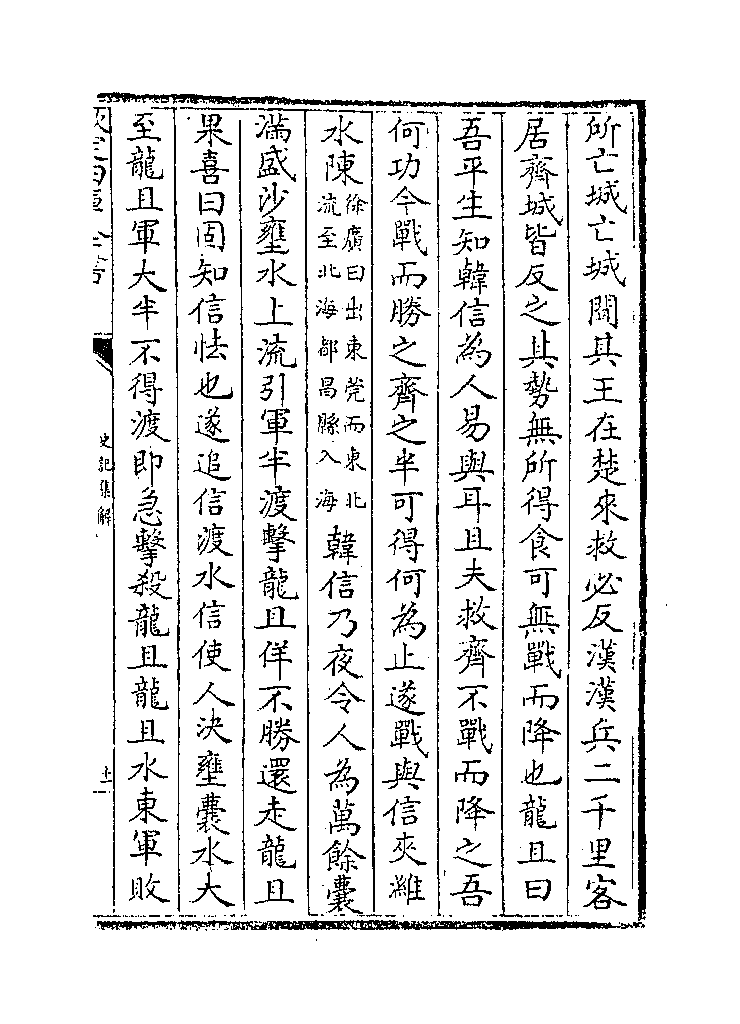 所亡城亡城聞其王在楚來救必反漢漢兵二千里客
居齊城皆反之其勢無所得食可無戰而降也龍且曰
吾平生知韓信為人易與耳且夫救齊不戰而降之吾
何功今戰而勝之齊之半可得何為止遂戰與信夾濰
水陳徐廣曰出東莞而東北流至北海都昌縣入海韓信乃夜令人為萬餘囊
滿盛沙壅水上流引軍半渡擊龍且佯不勝還走龍且
果喜曰固知信怯也遂追信渡水信使人決壅囊水大
至龍且軍大半不得渡即急擊殺龍且龍且水東軍敗
欽定四庫全書
史記集解